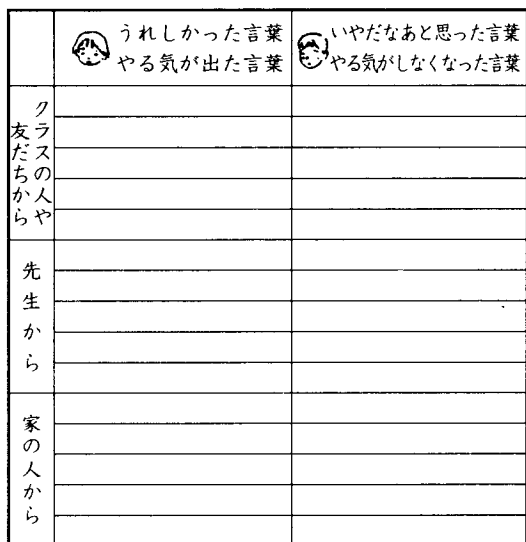 うれしかった言葉
やる気が出た言葉
いやだなあと思った言葉
やる気がしなくなった言葉
クラスの人や
友だちから
先生から
家の人から